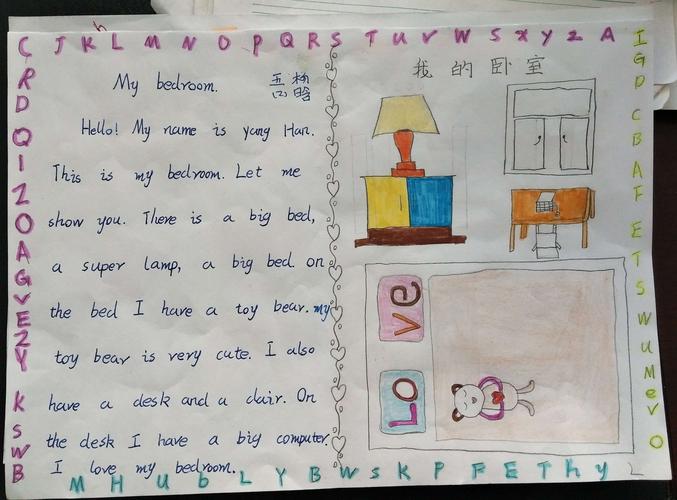 C J K L M N O P Q R S T U V W S X Y Z A
h
My bedroom.
五(2) 杨晗
Hello! My name is yang Han.
This is my bedroom. Let me
show you. There is a big bed,
a super lamp, a big bed. on
the bed I have a toy bear. my
toy bear is very cute. I also
have a desk and a clair. On
the desk I have a big computer.
I love my bedroom.
我的卧室
LOVE
C R D Q I Z O A G V E Z Y K S W B
I G D C B A F E T S W U M e V O
M H U b L Y B W S K P F E T h y L